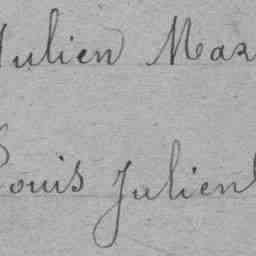 Julien Max
Louis Julien